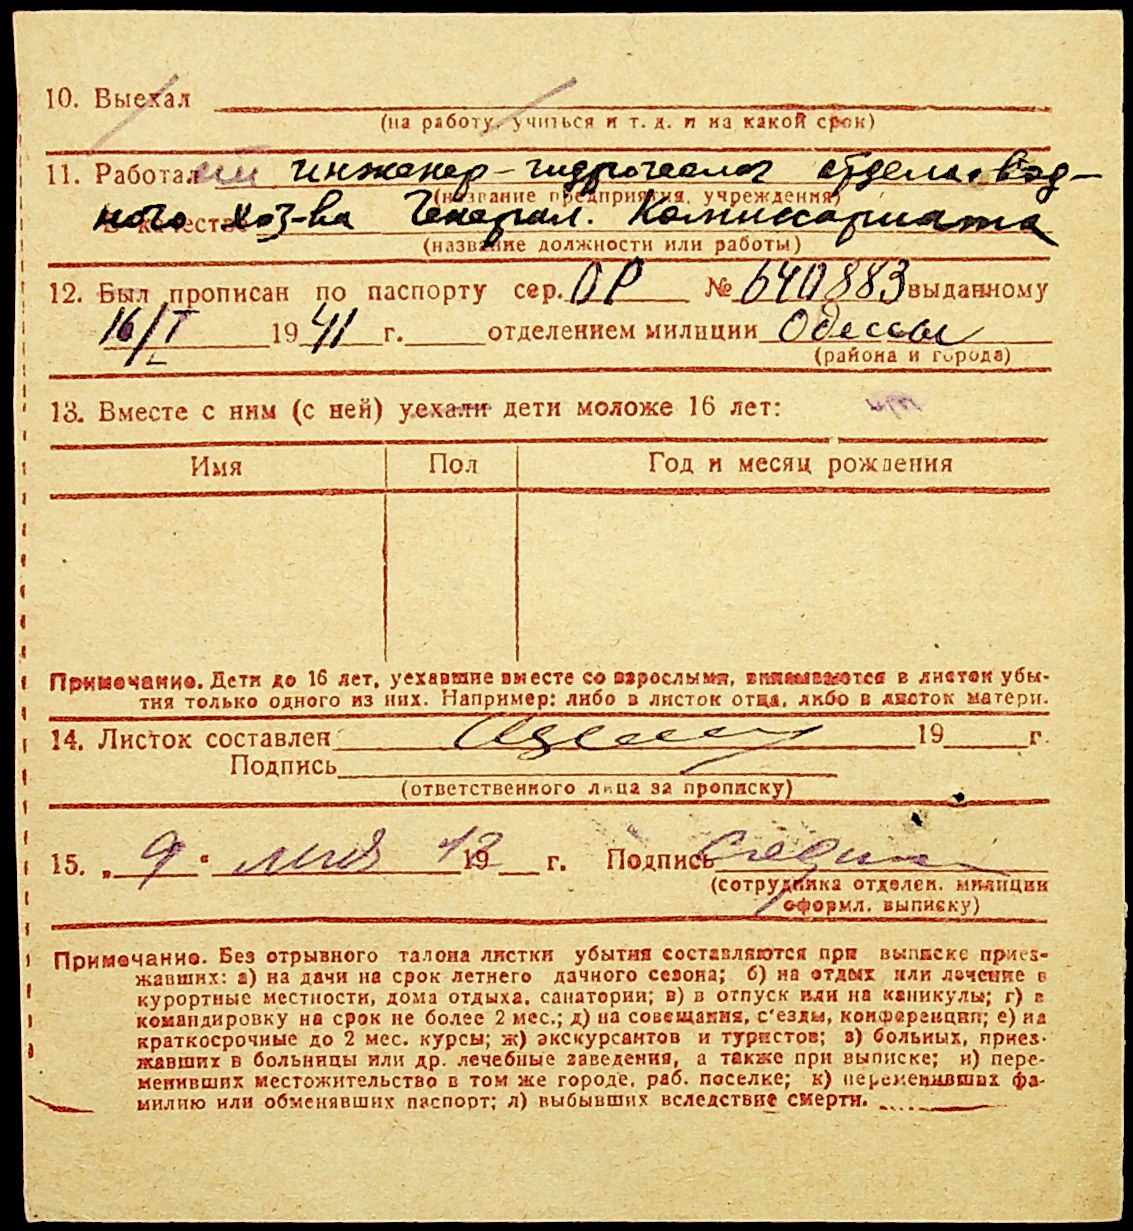 10. Выехал
(на работу, учиться и т. д. и на какой срок)
11. Работал инженер-гидрогеолог отдела вод-
(название предприятия, учреждения)
ного хоз-ва Генерал. Комиссариата
в качестве
(название должности или работы)
12. Был прописан по паспорту сер. ОР № 640883 выданному
16/I 1941 г. отделением милиции Одессы
(района и города)
13. Вместе с ним (с ней) уехали дети моложе 16 лет:
Имя Пол Год и месяц рождения
Примечание. Дети до 16 лет, уехавшие вместе со взрослыми, вписываются в листок убы-
тия только одного из них. Например: либо в листок отца, либо в листок матери.
14. Листок составлен 19 г.
Подпись
(ответственного лица за прописку)
15. „9“ 19 г. Подпись
(сотрудника отделен. милиции
оформл. выписку)
Примечание. Без отрывного талона листки убытия составляются при выписке приез-
жавших: а) на дачи на срок летнего дачного сезона; б) на отдых или лечение в
курортные местности, дома отдыха, санатории; в) в отпуск или на каникулы; г) в
командировку на срок не более 2 мес.; д) на совещания, с'езды, конференции; е) на
краткосрочные до 2 мес. курсы; ж) экскурсантов и туристов; з) больных, приез-
жавших в больницы или др. лечебные заведения, а также при выписке; и) пере-
менивших местожительство в том же городе, раб. поселке; к) переменивших фа-
милию или обменявших паспорт; л) выбывших вследствие смерти.